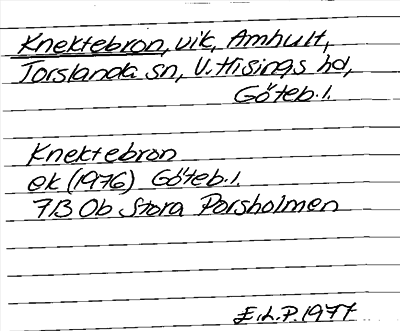 Knektebron, vik, Amhult,
Torslanda sn, V. Hisings hd,
Göteb. l.
Knektebron
ek (1976) Göteb. l.
7B 0b Stora Porsholmen
E.L.P. 1977